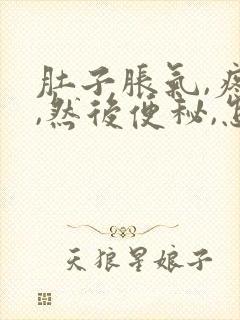 肚子脹氣,
,然後便秘,
天狼星娘子